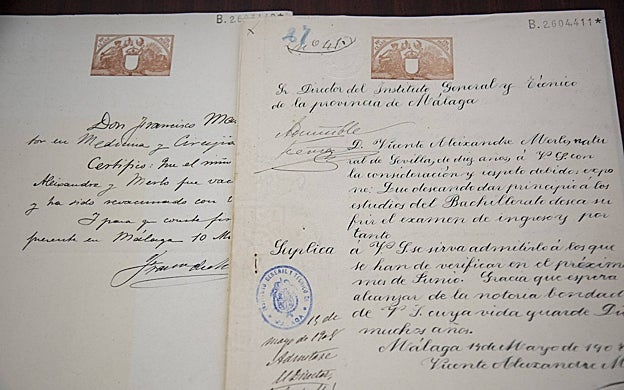 B.2604412*
Don Francisco Me
tor en Medicina y Cirugia
Certifico: Que el niñ
Aleixandre y Merlo fue vac
y ha sido revacunado con
Y para que conste fir
presente en Málaga 10 Ma
B.2604.411*
27
Sr Director del Instituto General y Técnico
de la provincia de Málaga
Admisible
D. Vicente Aleixandre Merlo, natu
ral de Sevilla, de diez años, á V. S. con
la consideración y respeto debidos expo
ne: Que deseando dar principio á los
estudios del Bachillerato desea su
frir el examen de ingreso y por
tanto
Suplica á V. S. se sirva admitirlo á los que
se han de verificar en el próximo
mes de Junio. Gracia que espera
alcanzar de la notoria bondad
de V. S. cuya vida guarde Di
muchos años.
Málaga 14 de Mayo de 190
Vicente Aleixandre M
INSTITUTO GENERAL Y TECNICO
15 de
mayo de 1908
Admítase
El Director